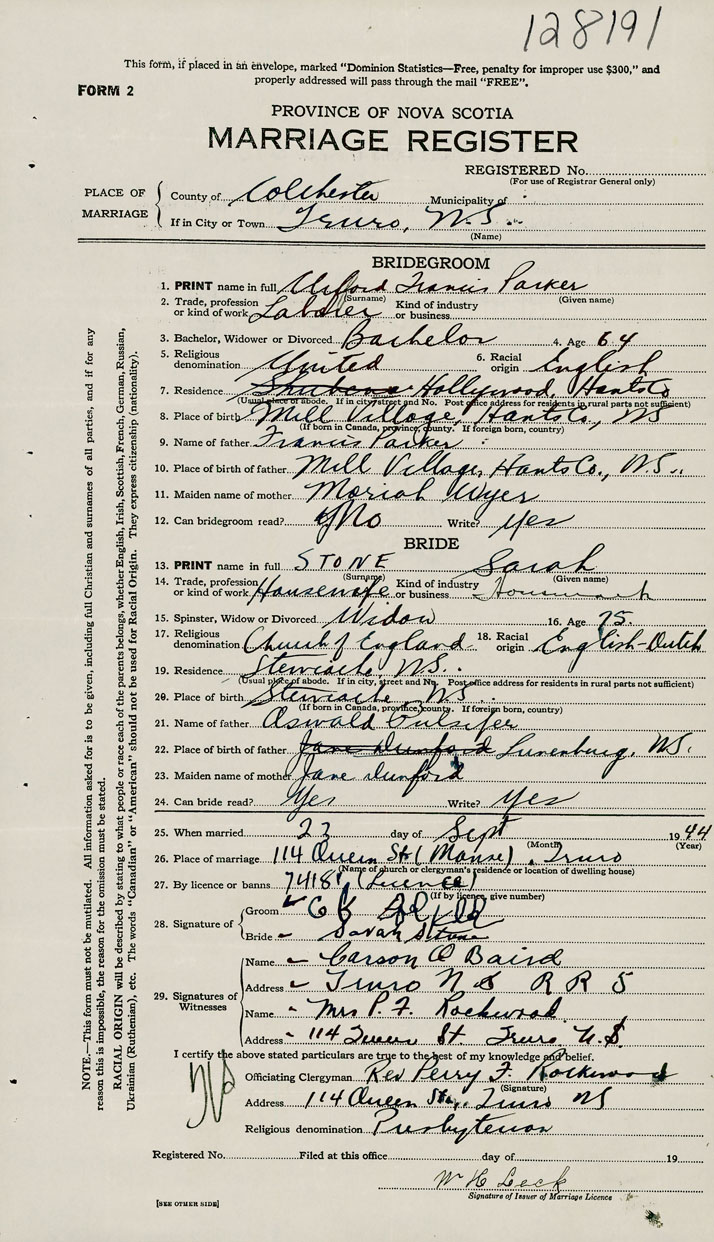 128191
This form, if placed in an envelope, marked "Dominion Statistics—Free, penalty for improper use $300," and
properly addressed will pass through the mail "FREE".
FORM 2
PROVINCE OF NOVA SCOTIA
MARRIAGE REGISTER
REGISTERED No.
(For use of Registrar General only)
PLACE OF MARRIAGE
County of Colchester Municipality of
If in City or Town Truro, N.S.
(Name)
BRIDEGROOM
1. PRINT name in full Francis Parker
(Surname) (Given name)
2. Trade, profession or kind of work Laborer Kind of industry or business
3. Bachelor, Widower or Divorced Bachelor 4. Age 64
5. Religious denomination United 6. Racial origin English
7. Residence Hollywood, Hants Co
(Usual place of abode. If in city, street and No. Post office address for residents in rural parts not sufficient)
8. Place of birth Mill Village, Hants Co, NS
(If born in Canada, province, county. If foreign born, country)
9. Name of father Francis Parker
10. Place of birth of father Mill Village, Hants Co., N.S.
11. Maiden name of mother Moriah Wyer
12. Can bridegroom read? No Write? Yes
BRIDE
13. PRINT name in full STONE Sarah
(Surname) (Given name)
14. Trade, profession or kind of work Housewife Kind of industry or business Housework
15. Spinster, Widow or Divorced Widow 16. Age 75.
17. Religious denomination Church of England 18. Racial origin English-Dutch
19. Residence Stewiacke, N.S.
(Usual place of abode. If in city, street and No. Post office address for residents in rural parts not sufficient)
20. Place of birth Stewiacke, NS.
(If born in Canada, province, county. If foreign born, country)
21. Name of father Oswald Pulsifer
22. Place of birth of father Jane Dunford Lunenburg, NS.
23. Maiden name of mother Jane Dunford
24. Can bride read? Yes Write? Yes
25. When married 23 day of Sept 1944
(Month) (Year)
26. Place of marriage 114 Queen St (Manse), Truro
(Name of church or clergyman's residence or location of dwelling house)
27. By licence or banns (Licence)
(If by licence, give number)
28. Signature of
Groom
Bride Sarah Stone
29. Signatures of Witnesses
Name Carson O Baird
Address Truro N S R R 5
Name Mrs P. F. Rockwood
Address 114 Queen St. Truro N.S.
I certify the above stated particulars are true to the best of my knowledge and belief.
Officiating Clergyman Rev Perry F. Rockwood
(Signature)
Address 114 Queen St., Truro NS
Religious denomination Presbyterian
Registered No. Filed at this office day of 19
W H Leck
Signature of Issuer of Marriage Licence
[SEE OTHER SIDE]
NOTE.—This form must not be mutilated. All information asked for is to be given, including full Christian and surnames of all parties, and if for any
reason this is impossible, the reason for the omission must be stated.
RACIAL ORIGIN will be described by stating to what people or race each of the parents belongs, whether English, Irish, Scottish, French, German, Russian,
Ukrainian (Ruthenian), etc. The words "Canadian" or "American" should not be used for Racial Origin. They express citizenship (nationality).